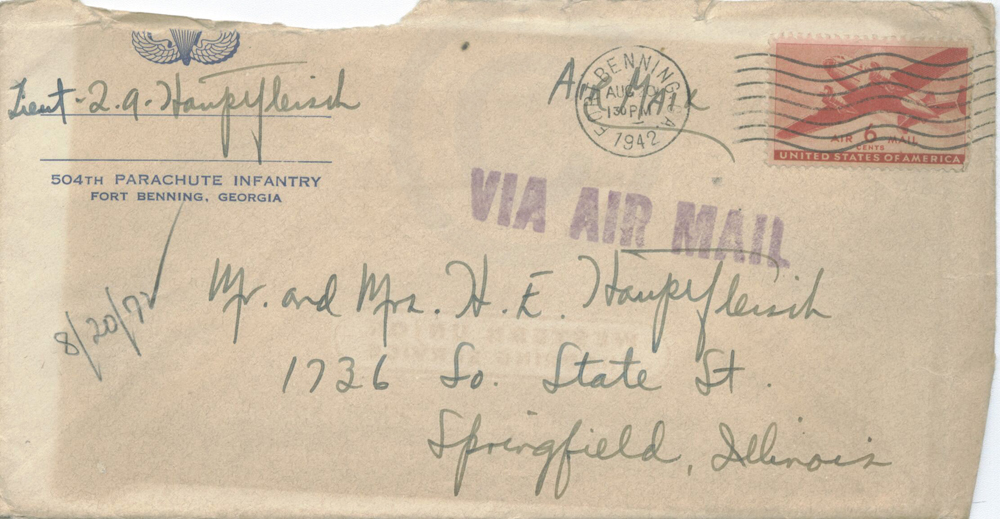 Lieut - L. A. Hauptfleisch
504TH PARACHUTE INFANTRY
FORT BENNING, GEORGIA
Air Mail
FORT BENNING, GA.
AUG 20
130 PM
1942
AIR 6 MAIL
CENTS
UNITED STATES OF AMERICA
VIA AIR MAIL
8/20/42
Mr. and Mrs. H. E. Hauptfleisch
1736 So. State St.
Springfield, Illinois